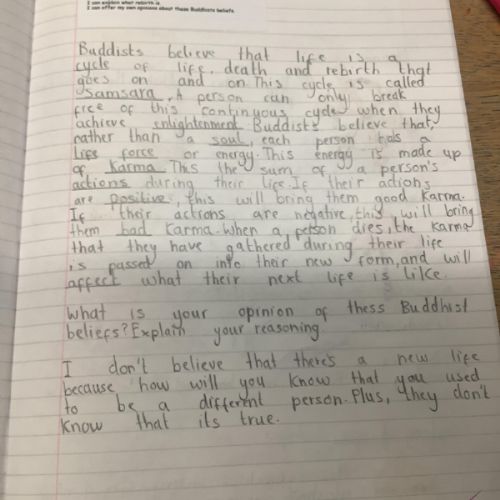 I can explain what rebirth is.
I can offer my own opinions about these Buddhists beliefs.
Buddhists believe that life is a
cycle of life, death and rebirth that
goes on and on. This cycle is called
Samsara. A person can only break
free of this continuous cycle when they
achieve enlightenment. Buddists believe that,
rather than a soul, each person has a
life force or energy. This energy is made up
of karma. This the sum of a person's
actions during their life. If their actions
are positive, this will bring them good karma.
If their actions are negative, this will bring
them bad karma. When a person dies, the karma
that they have gathered during their life
is passed on into their new form, and will
affect what their next life is like.
What is your opinion of thess Buddhist
beliefs? Explain your reasoning
I don't believe that there's a new life
because how will you know that you used
to be a different person. Plus, they don't
know that its true.